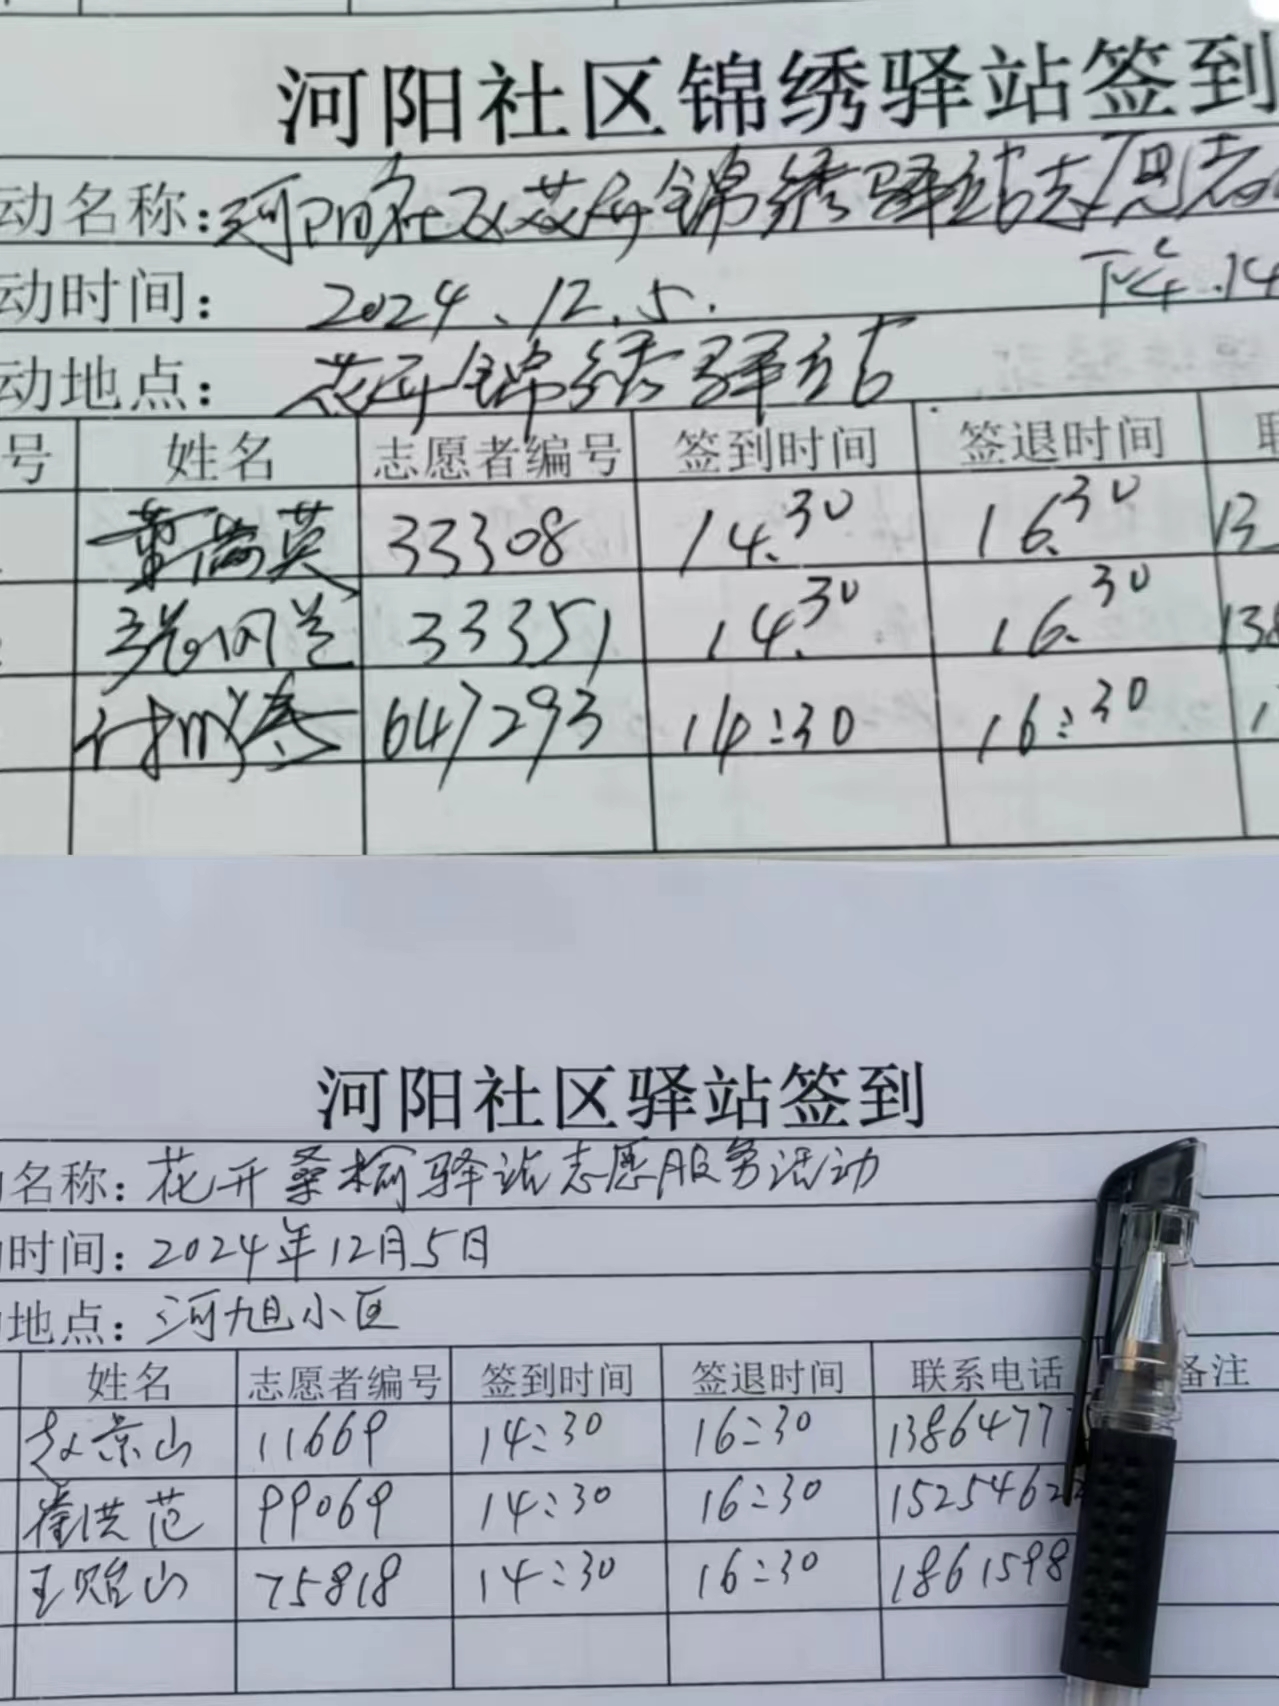 河阳社区锦绣驿站签到
动名称:河阳社区花开锦绣驿站志愿
动时间: 2024.12.5. 下午.14
动地点: 花开锦绣驿站
号 姓名 志愿者编号 签到时间 签退时间
英 33308 14.30 16.30 13
33351 14.30 16.30 138
647293 14:30 16:30 1
河阳社区驿站签到
名称: 花开桑榆驿站志愿服务活动
时间: 2024年12月5日
地点: 河旭小区
姓名 志愿者编号 签到时间 签退时间 联系电话 备注
赵景山 11669 14:30 16:30 1386477
崔洪范 99069 14:30 16:30 1525462
王贻山 75818 14:30 16:30 1861598